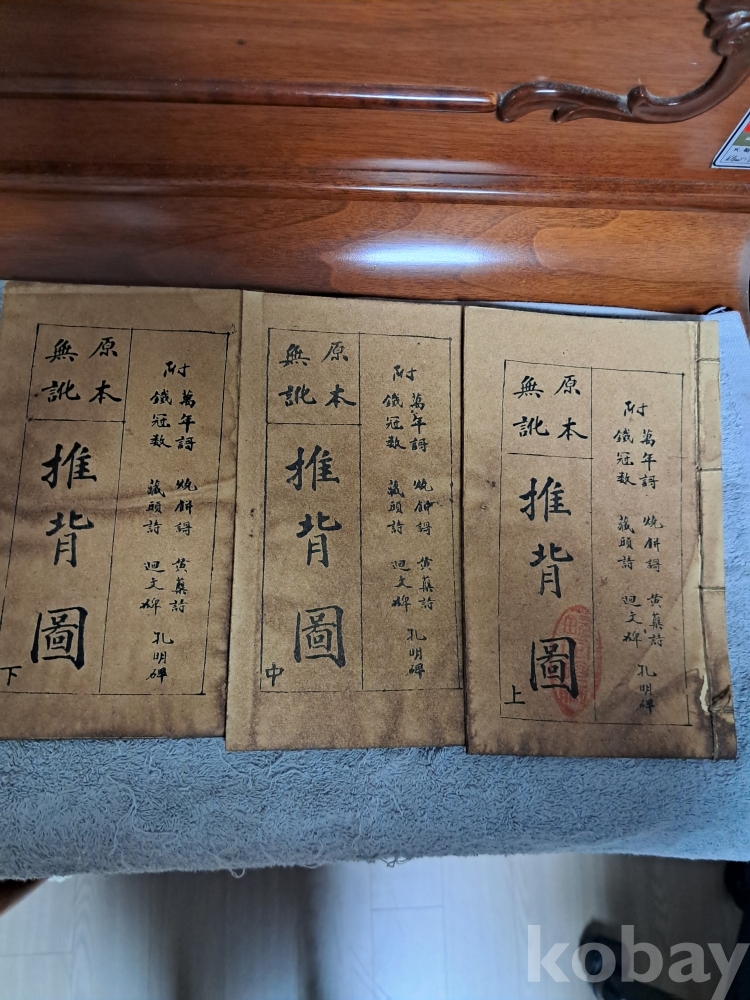 附
萬年謌 燒餅謌 黄蘗詩
鐵冠数 藏頭詩 迴文碑
孔明碑
原本
無訛
推背圖
上
附
萬年謌 燒餅謌 黄蘗詩
鐵冠数 藏頭詩 迴文碑
孔明碑
原本
無訛
推背圖
中
附
萬年謌 燒餅謌 黄蘗詩
鐵冠数 藏頭詩 迴文碑
孔明碑
原本
無訛
推背圖
下
kobay